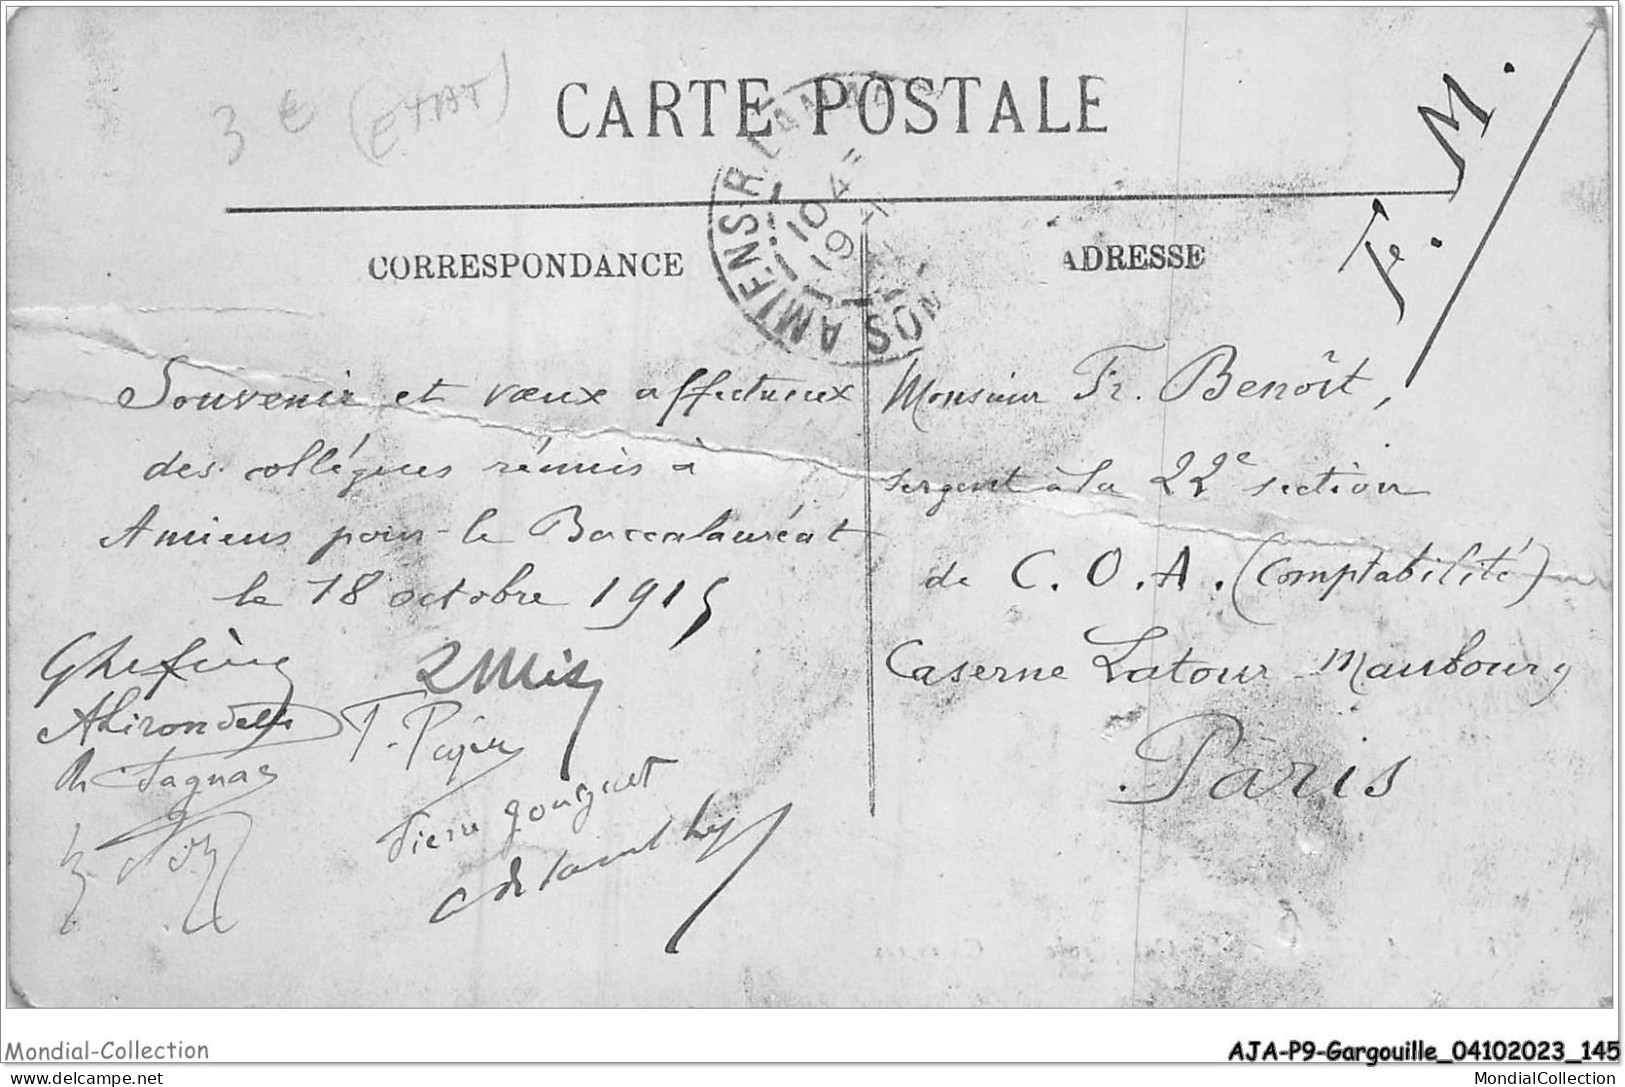 3 € (ETAT)
CARTE POSTALE
F. M.
CORRESPONDANCE
ADRESSE
AMIENS-R.
10
19
Souvenir et vœux affectueux
des collégues réunis à
Amiens pour le Baccalauréat
le 18 octobre 1915
Ahirondelle
T. Payen
Monsieur Fr. Benôit,
sergent à la 22e section
de C.O.A. (Comptabilité)
Caserne Latour-Maubourg
Paris
Mondial-Collection
AJA-P9-Gargouille_04102023_145
www.delcampe.net
MondialCollection